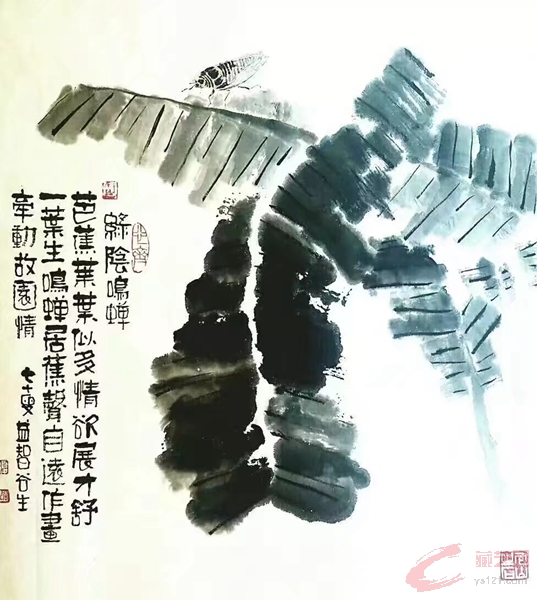 綠陰鳴蟬
芭蕉葉葉似多情欲展才舒
一葉生鳴蟬居蕉聲自遠作畫
牽動故園情 七叟益智谷生